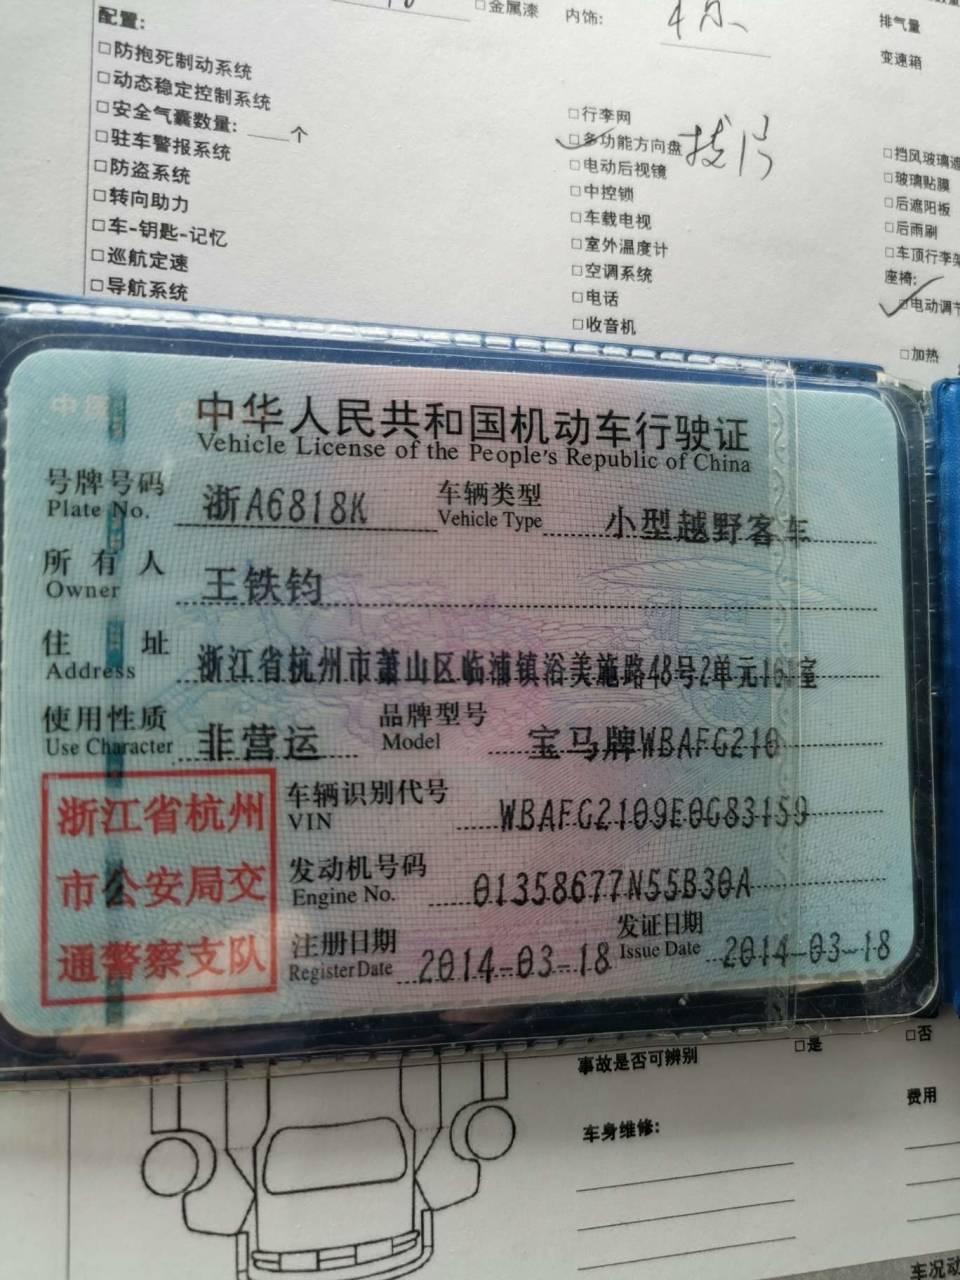 □金属漆 内饰:
排气量
配置:
变速箱
□防抱死制动系统
□动态稳定控制系统
□安全气囊数量:____个
□行李网
□驻车警报系统
□多功能方向盘
□挡风玻璃
□防盗系统
□电动后视镜
□玻璃贴膜
□转向助力
□中控锁
□后遮阳板
□车-钥匙-记忆
□车载电视
□后雨刷
□巡航定速
□室外温度计
□车顶行李架
□导航系统
□空调系统
座椅:
□电话
□电动调节
□收音机
□加热
中华人民共和国机动车行驶证
Vehicle License of the People's Republic of China
号牌号码 浙A6818K 车辆类型 小型越野客车
Plate No. Vehicle Type
所有人 王铁钧
Owner
住址 浙江省杭州市萧山区临浦镇浴美施路48号2单元室
Address
使用性质 非营运 品牌型号 宝马牌WBAFG210
Use Character Model
浙江省杭州
市公安局交
通警察支队
车辆识别代号 WBAFG2109E0G83159
VIN
发动机号码 01358677N55B30A
Engine No.
注册日期 2014-03-18 发证日期 2014-03-18
Register Date Issue Date
事故是否可辨别 □是 □否
费用
车身维修:
车况动